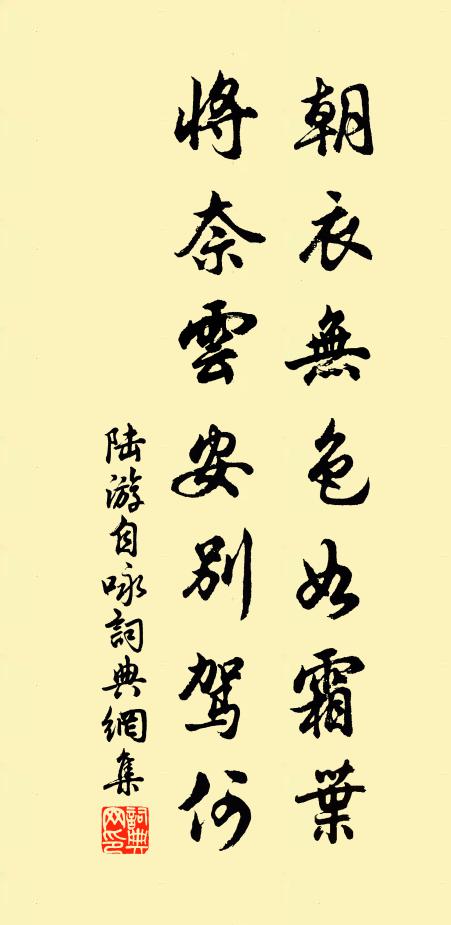 朝衣無色如霜葉
將奈雲安別駕何
陸游自咏詞典網集
詞典网印